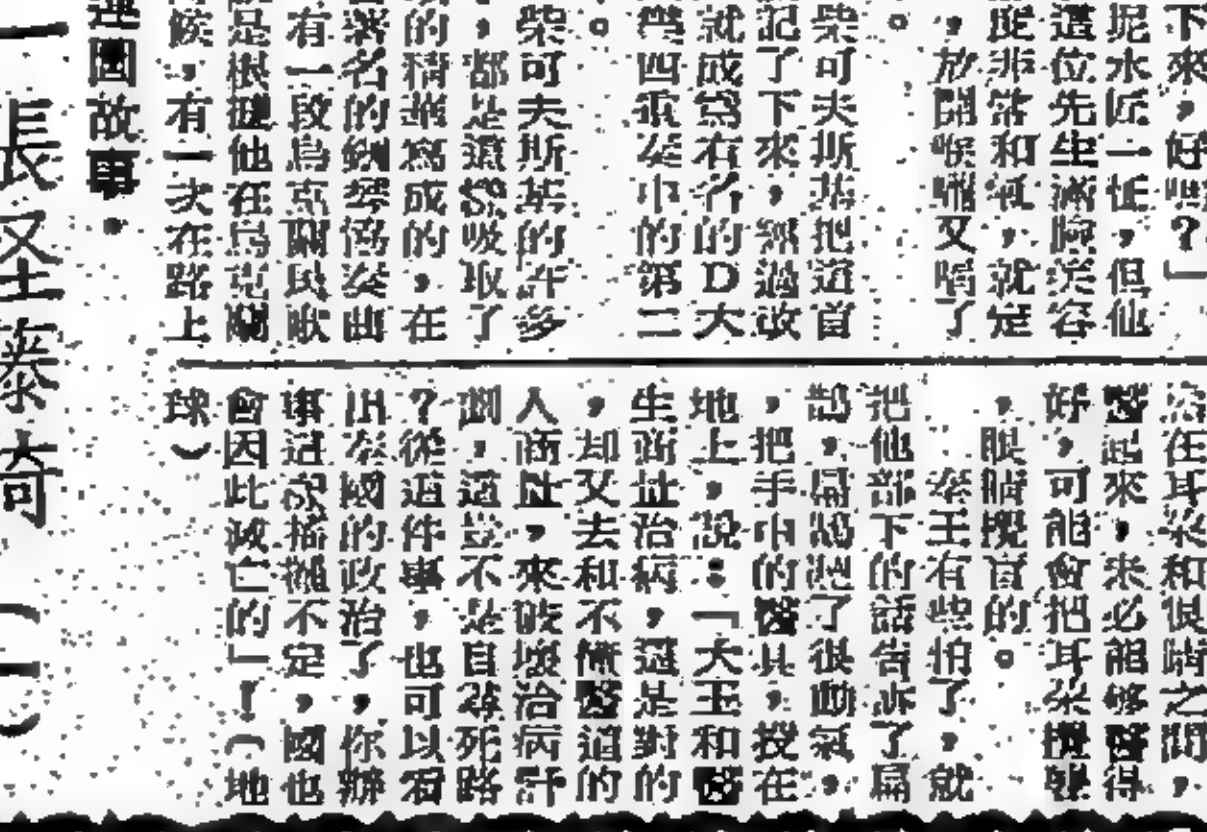 下來,好嗎?」
泥水匠一怔,但他
這位先生滿臉笑容
度非常和氣,就定
,放開喉嚨又唱了
。
柴可夫斯基把這首
記了下來,經過改
就成爲有名的D大
四重奏中的第二
。
柴可夫斯基的許多
,都是這樣吸取了
的精華寫成的,在
著名的鋼琴協奏曲
有一段烏克蘭民歌
是根據他在烏克蘭
候,有一次在路上
故事。
一張怪藥奇(一)
在耳朵和眼睛之間,
醫起來,未必能够醫得
好,可能會把耳朵攪聾
,眼睛攪盲的。
秦王有些怕了,就
把他部下的話告訴了扁
鵲,扁鵲聽了很動氣,
,把手中的醫具,投在
地上,說:「大王和醫
生商量治病,這是對的
,却又去和不懂醫道的
人商量,來破壞治病計
劃,這豈不是自尋死路
?從這件事,也可以看
出秦國的政治了,你辦
事這樣搖擺不定,國也
會因此滅亡的」!(地
球)